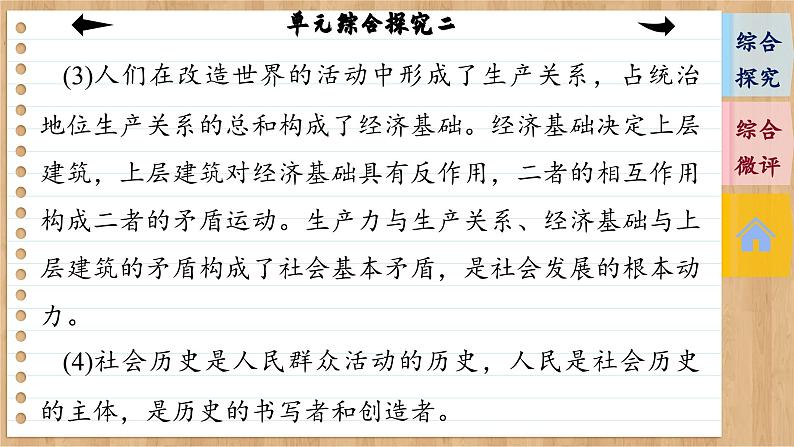 单元综合探究二
(3)人们在改造世界的活动中形成了生产关系，占统治
地位生产关系的总和构成了经济基础。经济基础决定上层
建筑，上层建筑对经济基础具有反作用，二者的相互作用
构成二者的矛盾运动。生产力与生产关系、经济基础与上
层建筑的矛盾构成了社会基本矛盾，是社会发展的根本动
力。
(4)社会历史是人民群众活动的历史，人民是社会历史
的主体，是历史的书写者和创造者。
综合
探究
综合
微评